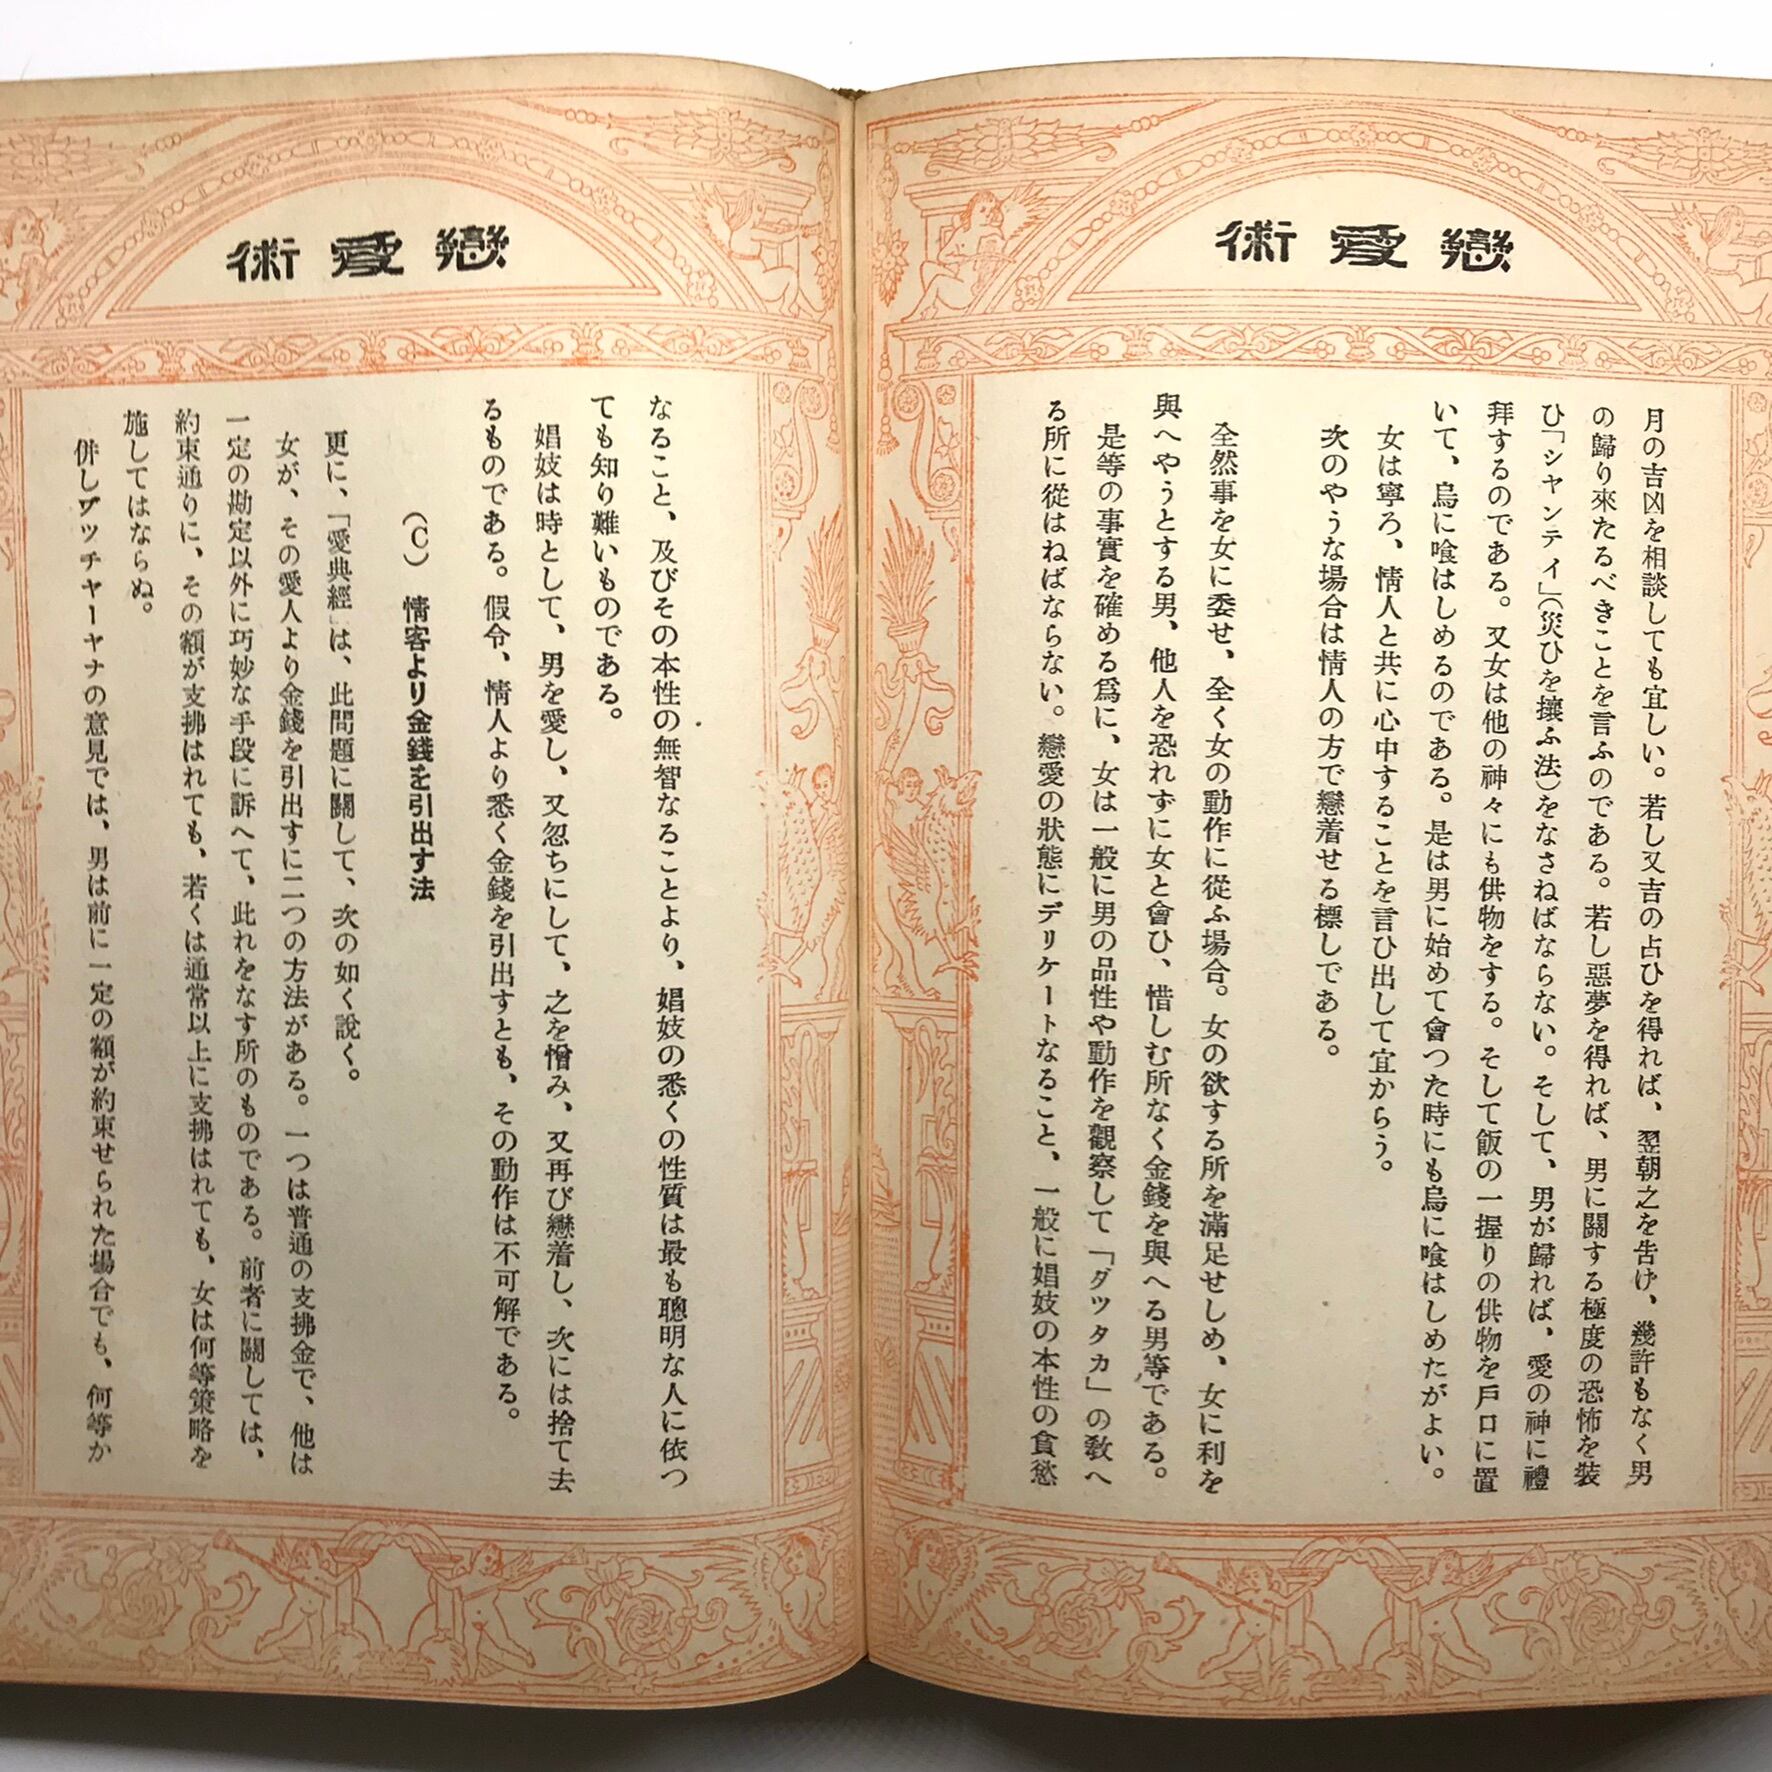 戀愛術
月の吉凶を相談しても宜しい。若し又吉の占ひを得れば、翌朝之を告げ、幾許もなく男
の歸り來たるべきことを言ふのである。若し惡夢を得れば、男に關する極度の恐怖を裝
ひ「シャンティ」(災ひを攘ふ法)をなさねばならない。そして、男が歸れば、愛の神に禮
拜するのである。又女は他の神々にも供物をする。そして飯の一握りの供物を戸口に置
いて、烏に喰はしめるのである。是は男に始めて會つた時にも烏に喰はしめたがよい。
女は寧ろ、情人と共に心中することを言ひ出して宜からう。
次のやうな場合は情人の方で戀着せる標しである。
全然事を女に委せ、全く女の動作に從ふ場合。女の欲する所を滿足せしめ、女に利を
與へやうとする男、他人を恐れずに女と會ひ、惜しむ所なく金錢を與へる男等である。
是等の事實を確める爲に、女は一般に男の品性や動作を觀察して「ダッタカ」の敎へ
る所に從はねばならない。戀愛の狀態にデリケートなること、一般に娼妓の本性の貪慾
戀愛術
なること、及びその本性の無智なることより、娼妓の悉くの性質は最も聰明な人に依つ
ても知り難いものである。
娼妓は時として、男を愛し、又忽ちにして、之を憎み、又再び戀着し、次には捨て去
るものである。假令、情人より悉く金錢を引出すとも、その動作は不可解である。
(C) 情客より金錢を引出す法
更に、「愛典經」は、此問題に關して、次の如く說く。
女が、その愛人より金錢を引出すに二つの方法がある。一つは普通の支拂金で、他は
一定の勘定以外に巧妙な手段に訴へて、此れをなす所のものである。前者に關しては、
約東通りに、その額が支拂はれても、若くは通常以上に支拂はれても、女は何等策略を
施してはならぬ。
併しヷッチャーヤナの意見では、男は前に一定の額が約束せられた場合でも、何等か